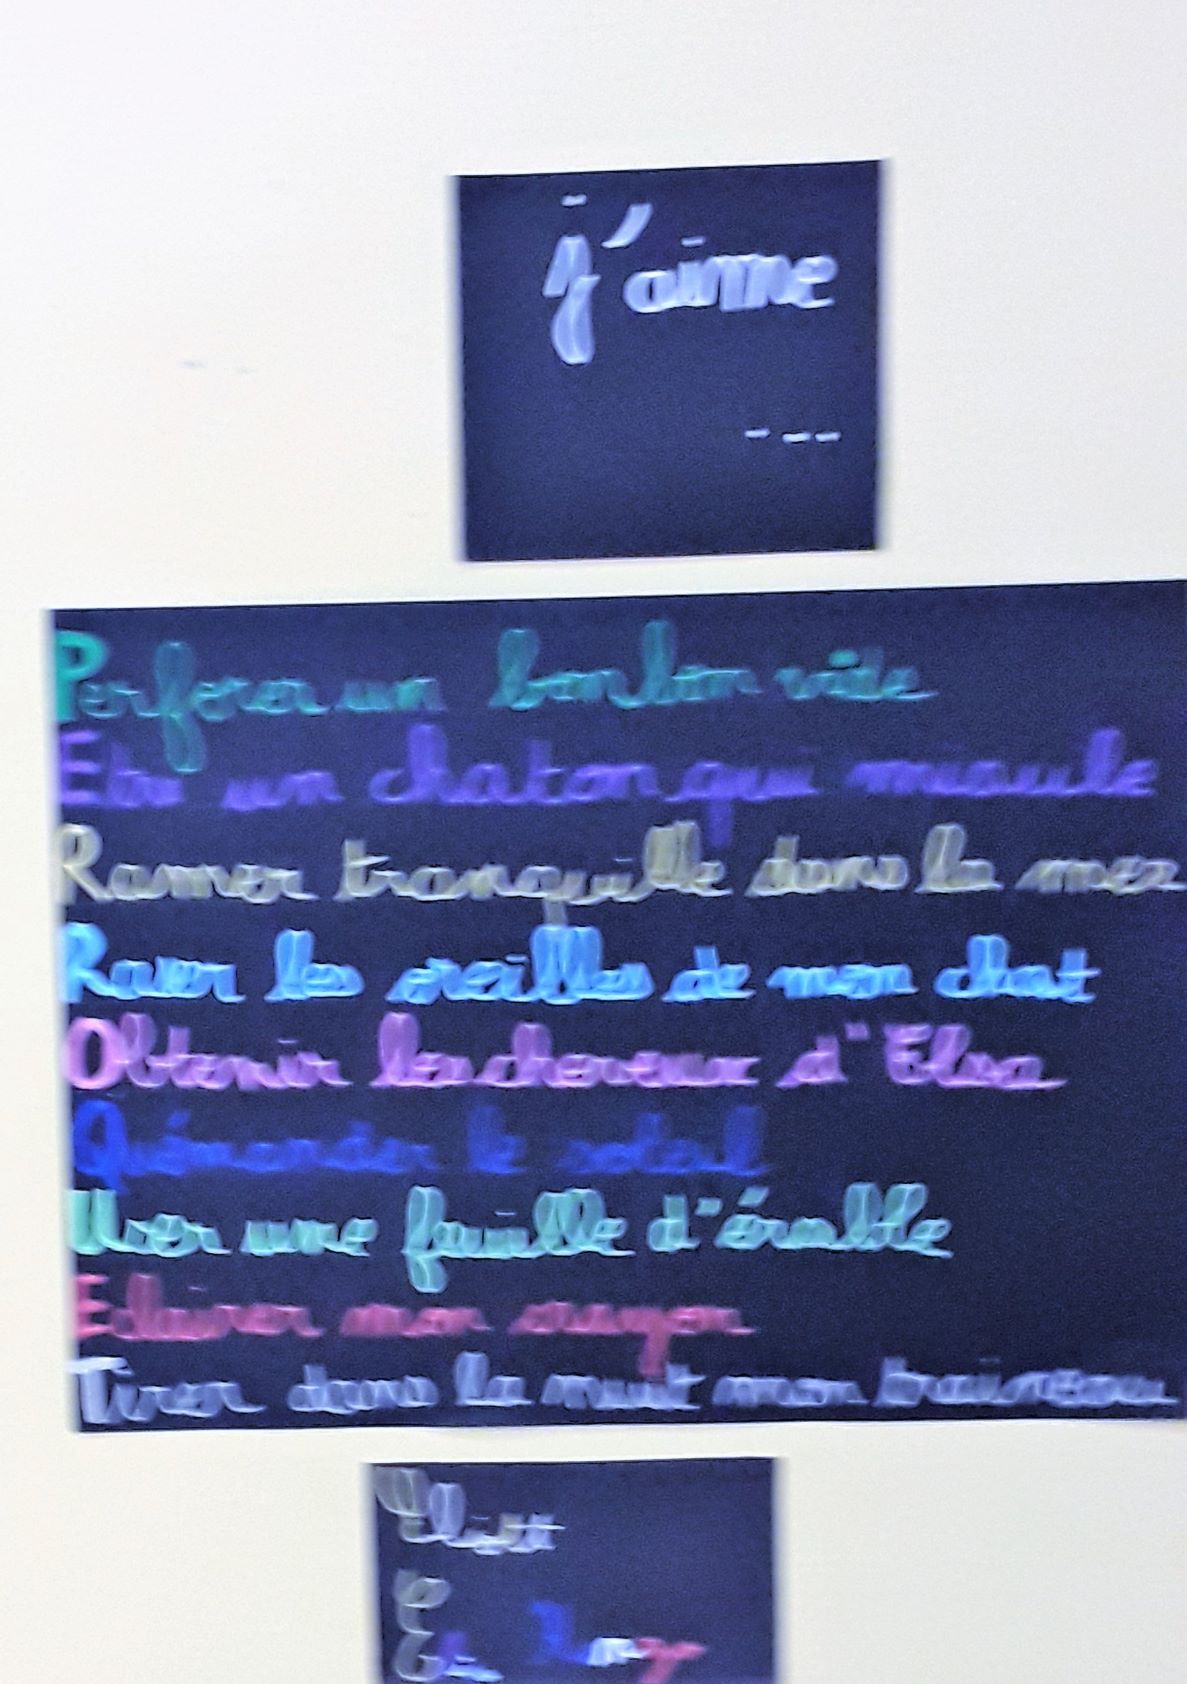 j'aime
---
Perforer un bonbon vide
Etre un chaton qui miaule
Ramer tranquille dans la mer
Raser les oreilles de mon chat
Obtenir les cheveux d'Elsa
Quémander le soleil
User une feuille d'érable
Eclairer mon crayon
Tirer dans la nuit mon traineau